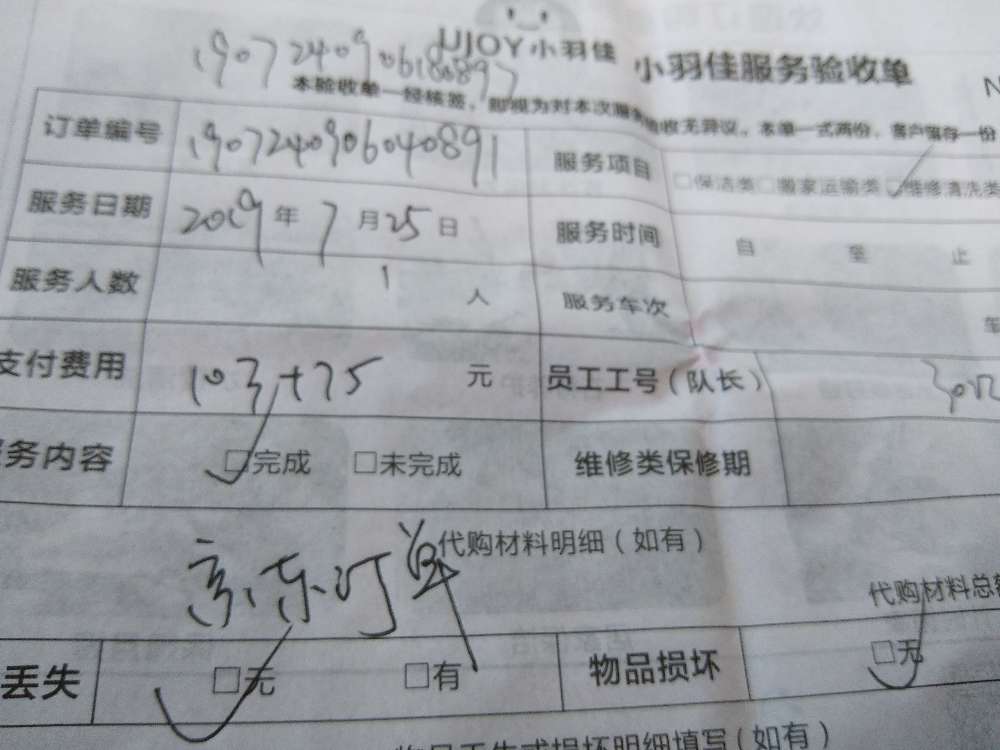 UJOY小羽佳 小羽佳服务验收单 N
1907240906180897
本验收单一经核签，即视为对本次服务验收无异议。本单一式两份，客户留存一份
订单编号 1907240906040891 服务项目 □保洁类 □搬家运输类 □维修清洗类
服务日期 2019年7月25日 服务时间 自 至 止
服务人数 1 人 服务车次 至
支付费用 103+75 元 员工工号（队长）
务内容 □完成 □未完成 维修类保修期
代购材料明细（如有）
京东订单
代购材料总
丢失 □无 □有 物品损坏 □无
物品丢失或损坏明细填写（如有）